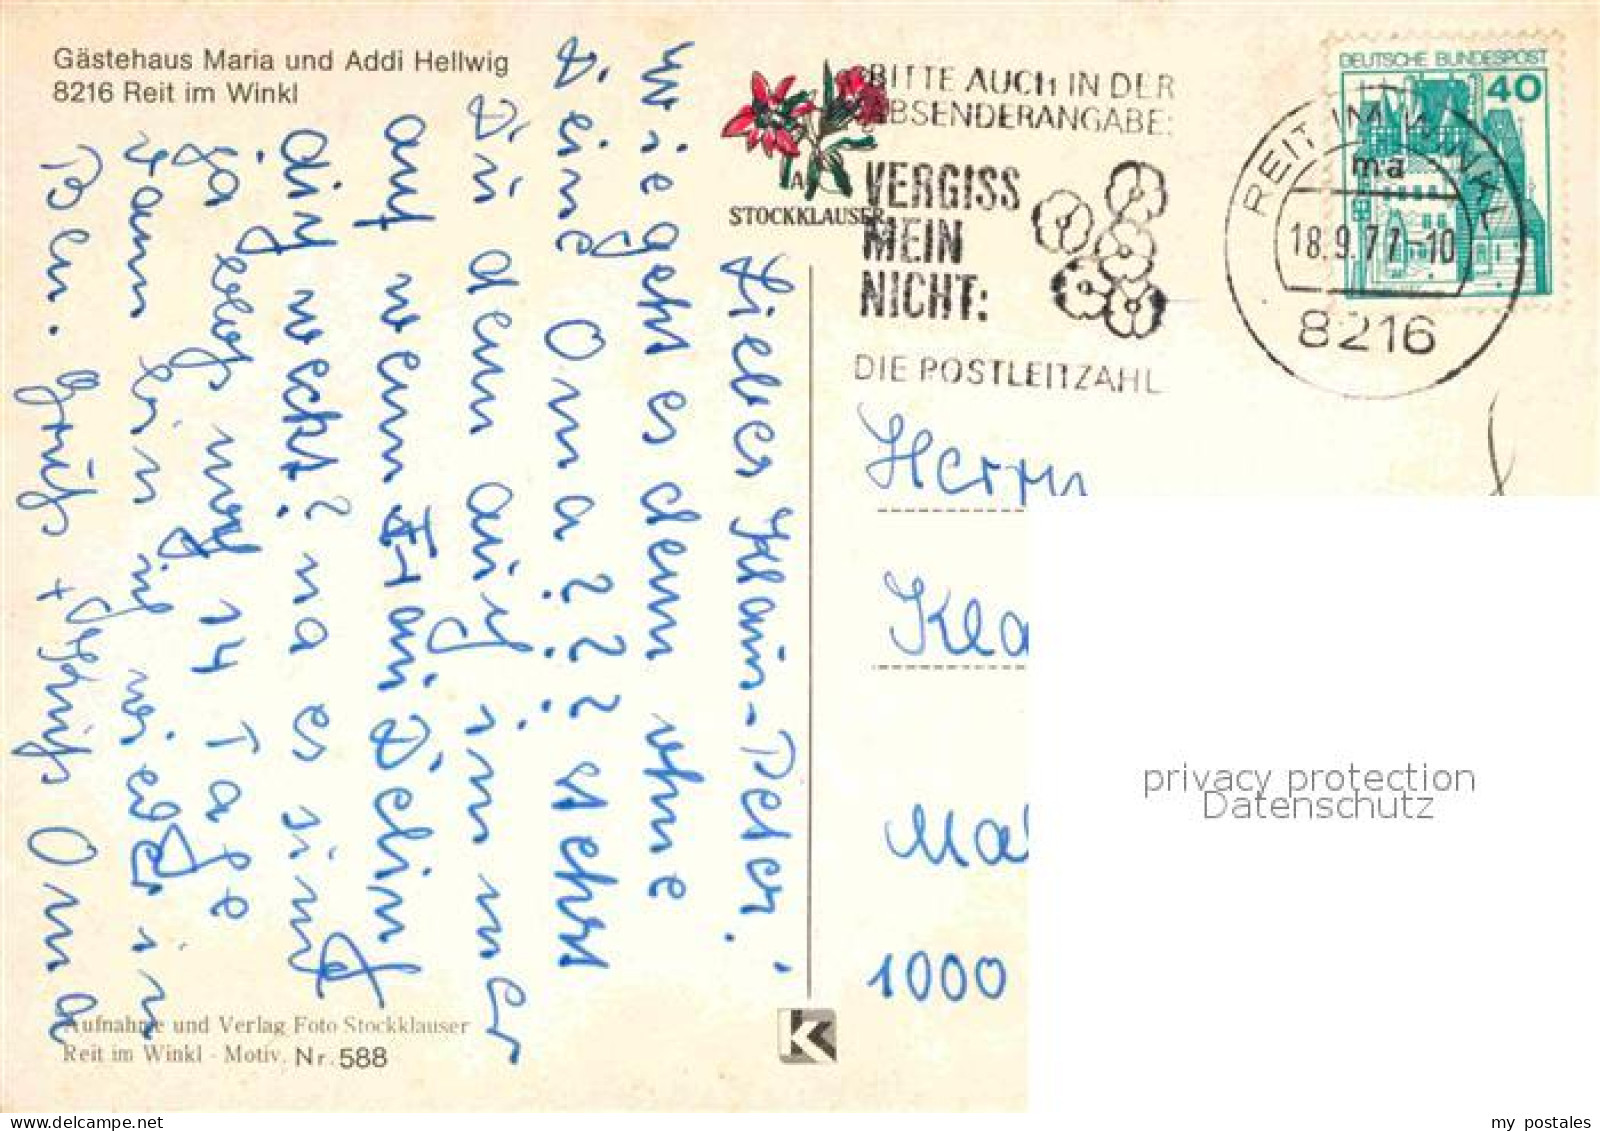 Gästehaus Maria und Addi Hellwig
8216 Reit im Winkl
STOCKKLAUSER
BITTE AUCH IN DER
ABSENDERANGABE:
VERGISS
MEIN
NICHT:
DIE POSTLEITZAHL
DEUTSCHE BUNDESPOST
40
REIT IM WINKL
ma
18.9.77-10
8216
Lieber Klaus-Peter!
Wie geht es denn ohne
Deine Oma ??? stehst
Du denn auch immer
auf wenn Frau
dich weckt? na es sind
ja bloß noch 14 Tage
dann bin ich wieder in
Bln. Gruß + Oma
Herrn
Kla
Ma
1000
Aufnahme und Verlag Foto Stockklauser
Reit im Winkl - Motiv. Nr. 588
K
privacy protection
Datenschutz
my postales
delcampe.net